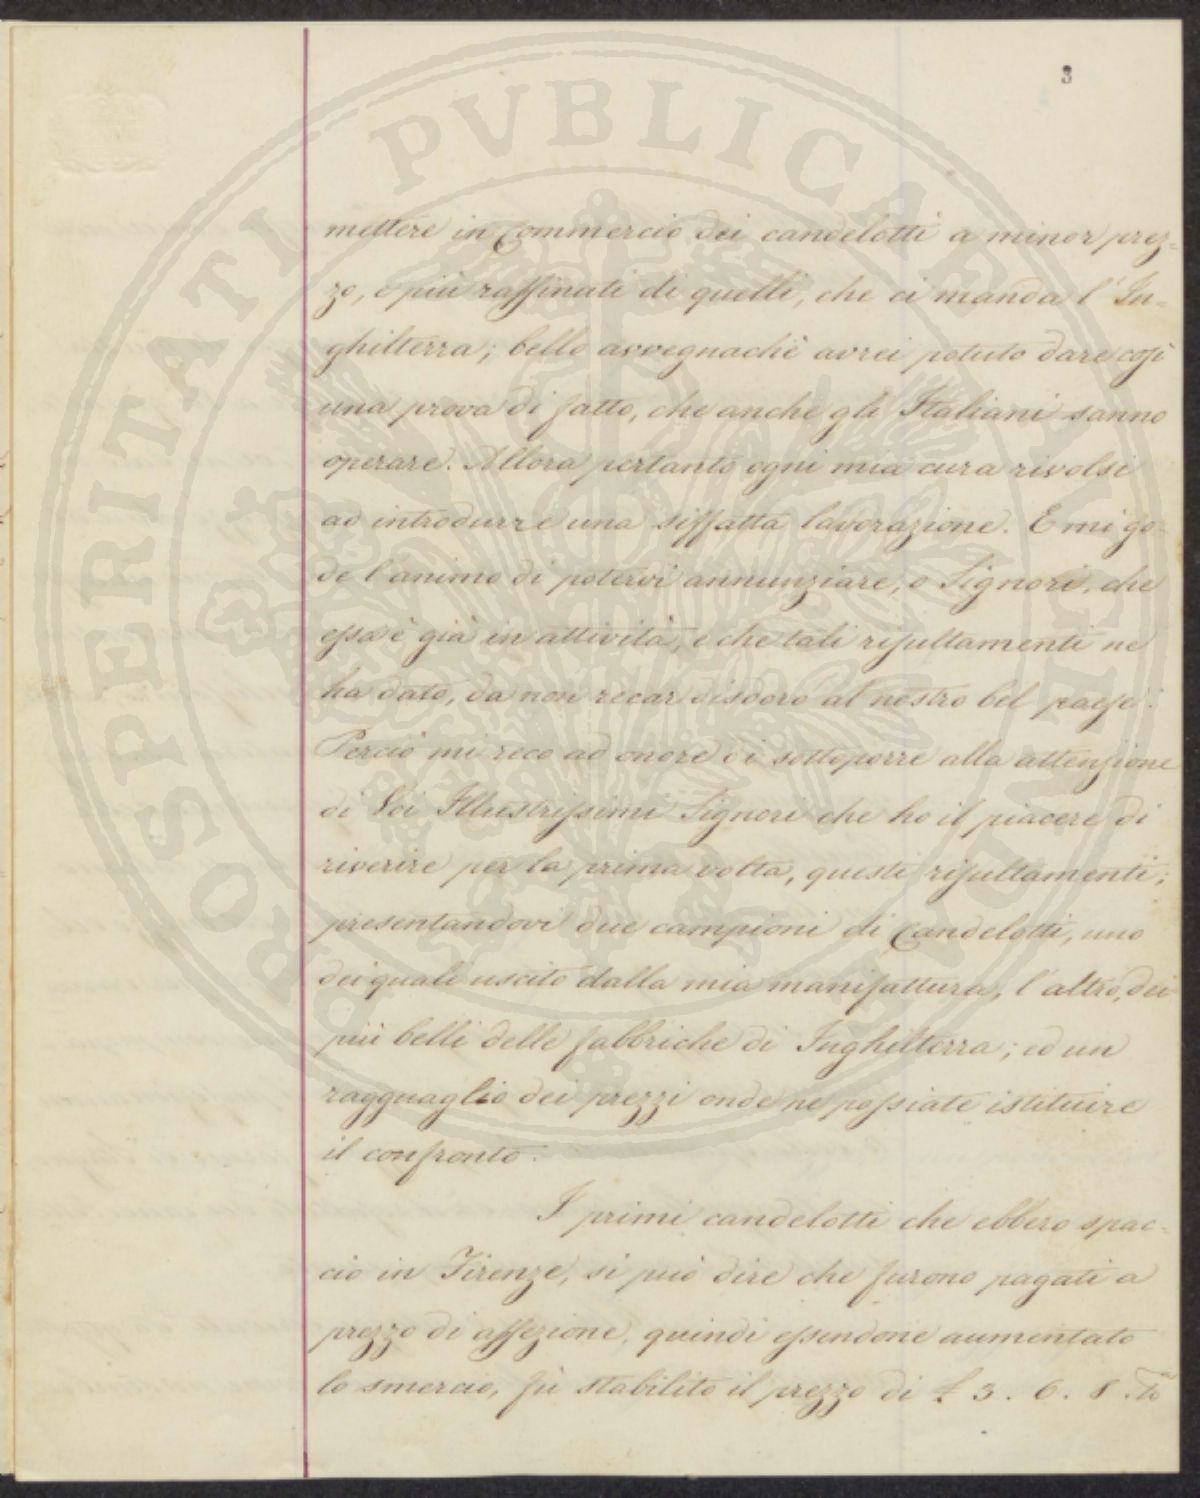 3
mettere in Commercio dei candelotti a minor prez-
zo, e più raffinati di quelli, che ci manda l'In-
ghilterra; bello avvegnachè avrei potuto dare così
una prova di fatto, che anche gli Italiani sanno
operare. Allora pertanto ogni mia cura rivolsi
ad introdurre una siffatta lavorazione. E mi go-
de l'animo di potervi annunziare, o Signori, che
essa è già in attività, e che tali risultamenti ne
ha dato, da non recar disdoro al nostro bel paese.
Perciò mi reco ad onore di sottoporre alla attenzione
di Voi Illustrissimi Signori che ho il piacere di
riverire per la prima volta, questi risultamenti;
presentandovi due campioni di Candelotti, uno
dei quali uscito dalla mia manifattura, l'altro, dei
più belli delle fabbriche di Inghilterra; ed un
ragguaglio dei prezzi onde ne possiate istituire
il confronto.
I primi candelotti che ebbero spac-
cio in Firenze, si può dire che furono pagati a
prezzo di affezione, quindi essendone aumentato
lo smercio, fù stabilito il prezzo di £ 3. 6. 8.
PROSPERITATI PVBLICAE